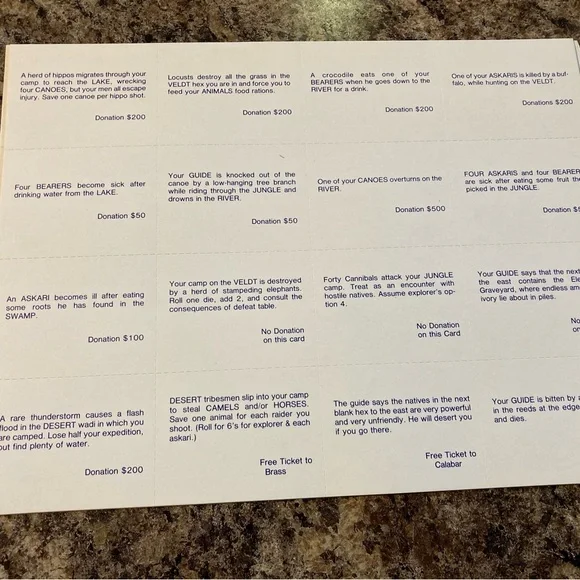 A herd of hippos migrates through your
camp to reach the LAKE, wrecking
four CANOES, but your men all escape
injury. Save one canoe per hippo shot.
Donation $200
Locusts destroy all the grass in the
VELDT hex you are in and force you to
feed your ANIMALS food rations.
Donation $200
A crocodile eats one of your
BEARERS when he goes down to the
RIVER for a drink.
Donation $200
One of your ASKARIS is killed by a buf-
falo, while hunting on the VELDT.
Donations $200
Four BEARERS become sick after
drinking water from the LAKE.
Donation $50
Your GUIDE is knocked out of the
canoe by a low-hanging tree branch
while riding through the JUNGLE and
drowns in the RIVER.
Donation $50
One of your CANOES overturns on the
RIVER.
Donation $500
FOUR ASKARIS and four BEARER
are sick after eating some fruit the
picked in the JUNGLE.
Donation $
An ASKARI becomes ill after eating
some roots he has found in the
SWAMP.
Donation $100
Your camp on the VELDT is destroyed
by a herd of stampeding elephants.
Roll one die, add 2, and consult the
consequences of defeat table.
No Donation
on this card
Forty Cannibals attack your JUNGLE
camp. Treat as an encounter with
hostile natives. Assume explorer's op-
tion 4.
No Donation
on this Card
Your GUIDE says that the next
the east contains the Ele
Graveyard, where endless am
ivory lie about in piles.
No
on
A rare thunderstorm causes a flash
flood in the DESERT wadi in which you
are camped. Lose half your expedition,
but find plenty of water.
Donation $200
DESERT tribesmen slip into your camp
to steal CAMELS and/or HORSES.
Save one animal for each raider you
shoot. (Roll for 6's for explorer & each
askari.)
Free Ticket to
Brass
The guide says the natives in the next
blank hex to the east are very powerful
and very unfriendly. He will desert you
if you go there.
Free Ticket to
Calabar
Your GUIDE is bitten by a
in the reeds at the edge
and dies.